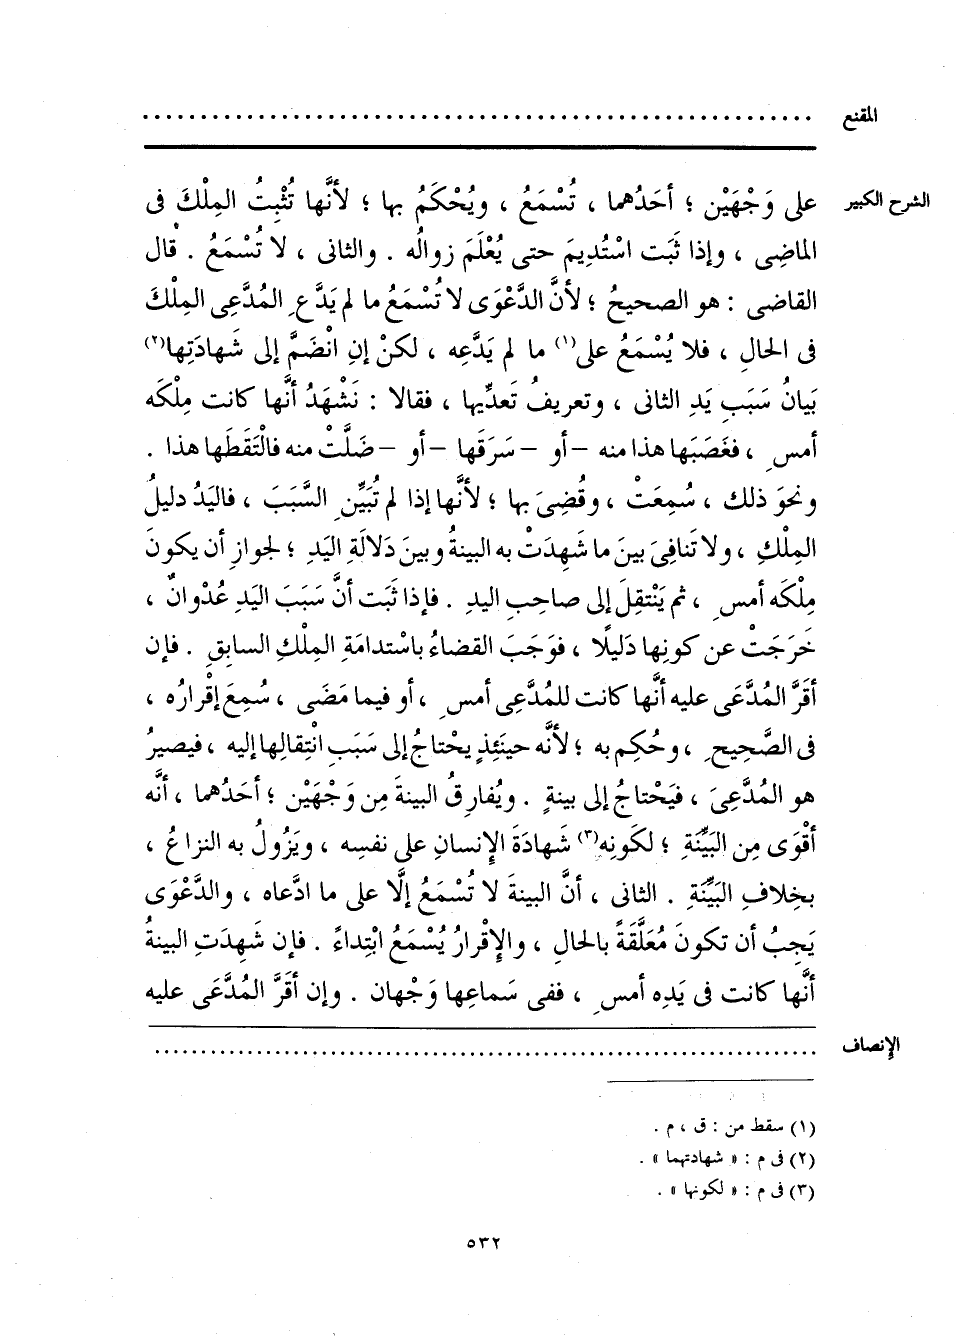 المقنع ................................................................
الشرح الكبير على وَجْهَيْن ؛ أحَدُهما ، تُسْمَعُ ، ويُحْكَمُ بها ؛ لأنَّها تُثْبِتُ المِلْكَ فى
الماضِى ، وإذا ثَبَت اسْتُدِيمَ حتى يُعْلَمَ زوالُه . والثانى ، لا تُسْمَعُ . قال
القاضى : هو الصحيحُ ؛ لأنَّ الدَّعْوَى لا تُسْمَعُ ما لم يَدَّعِ المُدَّعِى المِلْكَ
فى الحالِ ، فلا يُسْمَعُ على(١) ما لم يَدَّعِه ، لكنْ إنِ انْضَمَّ إلى شَهادَتِها(٢)
بَيانُ سَبَبِ يَدِ الثانى ، وتعريفُ تَعدِّيها ، فقالا : نَشْهَدُ أنَّها كانت مِلْكَه
أمسِ ، فغَصَبَها هذا منه - أو - سَرَقَها - أو - ضَلَّتْ منه فالْتَقَطَها هذا .
ونحوَ ذلك ، سُمِعَتْ ، وقُضِىَ بها ؛ لأنَّها إذا لم تُبَيِّنِ السَّبَبَ ، فاليَدُ دليلُ
المِلْكِ ، ولا تَنافِىَ بينَ ما شَهِدَتْ به البينةُ وبينَ دَلالَةِ اليَدِ ؛ لجوازِ أن يكونَ
مِلْكَه أمسِ ، ثم يَنْتقِلَ إلى صاحِبِ اليدِ . فإذا ثَبَت أنَّ سَبَبَ اليَدِ عُدْوانٌ ،
خَرَجَتْ عن كونِها دَليلًا ، فوَجَبَ القضاءُ باسْتدامَةِ المِلْكِ السابقِ . فإن
أقَرَّ المُدَّعَى عليه أنَّها كانت للمُدَّعِى أمسِ ، أو فيما مَضَى ، سُمِعَ إقْرارُه ،
فى الصَّحِيحِ ، وحُكِم به ؛ لأنَّه حينَئِذٍ يحْتاجُ إلى سَبَبِ انْتِقالِها إليه ، فيصيرُ
هو المُدَّعِىَ ، فيَحْتاجُ إلى بينةٍ . ويُفارِقُ البينةَ مِن وَجْهَيْن ؛ أحَدُهما ، أنَّه
أقْوَى مِن البَيِّنَةِ ؛ لكَونِه(٣) شَهادَةَ الإنسانِ على نفسِه ، ويَزُولُ به النزاعُ ،
بخِلافِ البَيِّنَةِ . الثانى ، أنَّ البينةَ لا تُسْمَعُ إلَّا على ما ادَّعاه ، والدَّعْوَى
يَجِبُ أن تكونَ مُعَلَّقَةً بالحالِ ، والإقْرارُ يُسْمَعُ ابْتِداءً . فإن شَهِدَتِ البينةُ
أنَّها كانت فى يَدِه أمسِ ، ففى سَماعِها وَجْهان . وإن أقَرَّ المُدَّعَى عليه
الإنصاف ................................................................
(١) سقط من : ق ، م .
(٢) فى م : « شهادتهما » .
(٣) فى م : « لكونها » .
٥٣٢